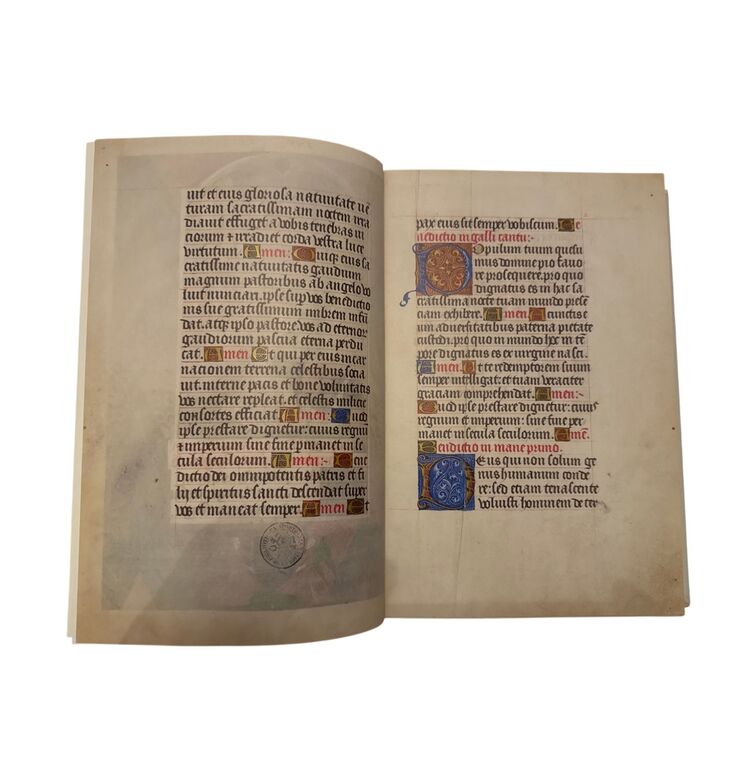 uit et eius gloriosa natiuitate uē
turam sacratissimam noctem irra
diauit effuget a uobis tenebras ui
ciorum et irradiet corda vestra luce
virtutum. Amen: Quiq; eius sa
cratissime natiuitatis gaudium
magnum pastoribus ab angelo uo
luit nunciari. ipse sup vos benedictio
nis sue gratissimum imbrem infū
dat. atq; ipso pastore vos ad eternor
gaudiorum pascua eterna perdu
cat. Amen Et qui per eius incar
nationem terrena celestibus socia
uit. interne pacis et bone voluntatis
vos nectare repleat. et celestis milicie
consortes efficiat Amen: Quod
ipse prestare dignetur: cuius regnū
et imperium sine fine pmanet in se
cula seculorum. Amen:- Bene
dictio dei omnipotentis patris et fi
lij et spiritus sancti descendat super
vos et maneat semper. Amen Et
pax eius sit semper vobiscum. Be
nedictio in galli cantu:-
Populum tuum quesu
mus domine pio fauo
re prosequere. pro quo
dignatus es in hac sa
cratissima nocte tuam mundo prese
ciam exhibere. Amen A cunctis e
um aduersitatibus paterna pietate
custodi. pro quo in mundo hoc in tē
pore dignatus es ex virgine nasci.
Amen. Ut te redemptorem suum
semper intelligat: et tuam veraciter
graciam comprehendat. Amen:-
Quod ipse prestare dignetur: cuius
regnum et imperium. sine fine per
manet in secula seculorum. Amē.
Bendictio in mane primo.
Deus qui non solum ge
nus humanum conde
re: sed etiam te nascente
voluisti hominem de ter